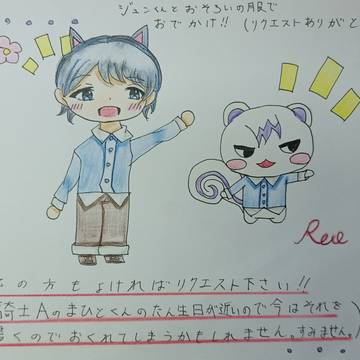 ジュンくんとおそろいの服で
おでかけ!! (リクエストありがと
の方もよければリクエスト下さい!!
騎士Aのまひとくんのたん生日が近いので今はそれを
書くのでおくれてしまうかもしれません。すみません。)